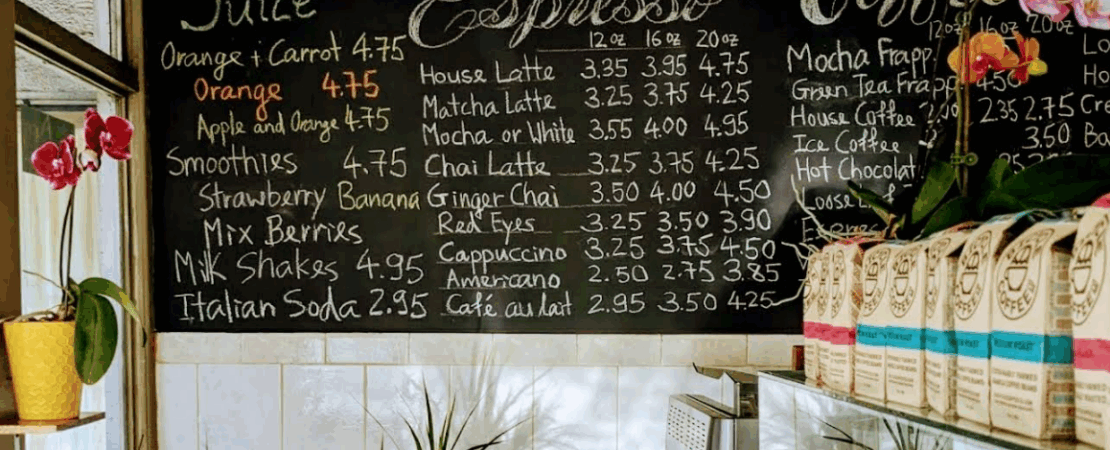 Juice
Orange + Carrot 4.75
Orange 4.75
Apple and Orange 4.75
Smoothies 4.75
Strawberry Banana
Mix Berries
Milk Shakes 4.95
Italian Soda 2.95
Espresso
12oz 16oz 20oz
House Latte 3.35 3.95 4.75
Matcha Latte 3.25 3.75 4.25
Mocha or White 3.55 4.00 4.95
Chai Latte 3.25 3.75 4.25
Ginger Chai 3.50 4.00 4.50
Red Eyes 3.25 3.50 3.90
Cappuccino 3.25 3.75 4.50
Americano 2.50 2.75 3.85
Café au lait 2.95 3.50 4.25
12oz 16oz 20oz
Mocha Frapp
Green Tea Frapp 4.50
House Coffee 2.35 2.75
Ice Coffee 3.50
Hot Chocolat
Loose
COFFEE